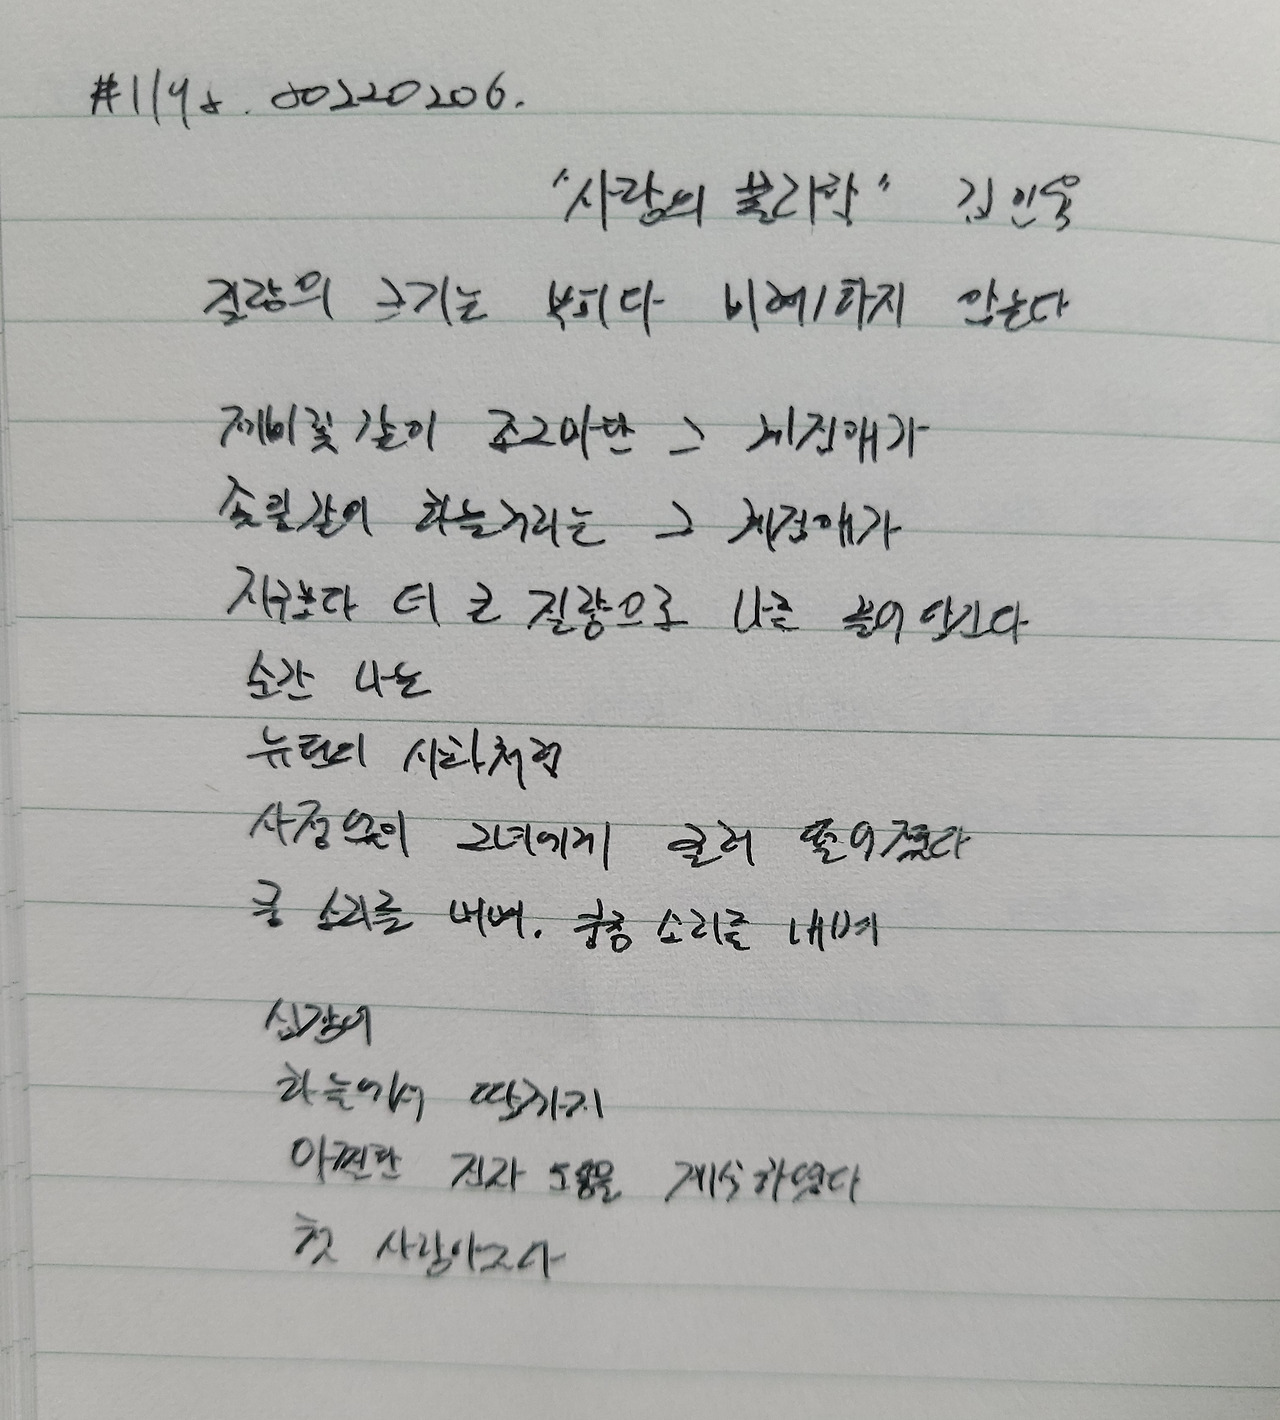 20220206.
"사랑의 물리학" 김인육
질량의 크기는 부피와 비례하지 않는다
제비꽃같이 조그마한 그 계집애가
꽃잎같이 하늘거리는 그 계집애가
지구보다 더 큰 질량으로 나를 끌어당긴다
순간 나는
뉴턴의 사과처럼
사정없이 그녀에게 굴러 떨어졌다
쿵 소리를 내며, 쿵쿵 소리를 내며
심장이
하늘에서 땅까지
아찔한 진자 운동을 계속하였다
첫 사랑이었다